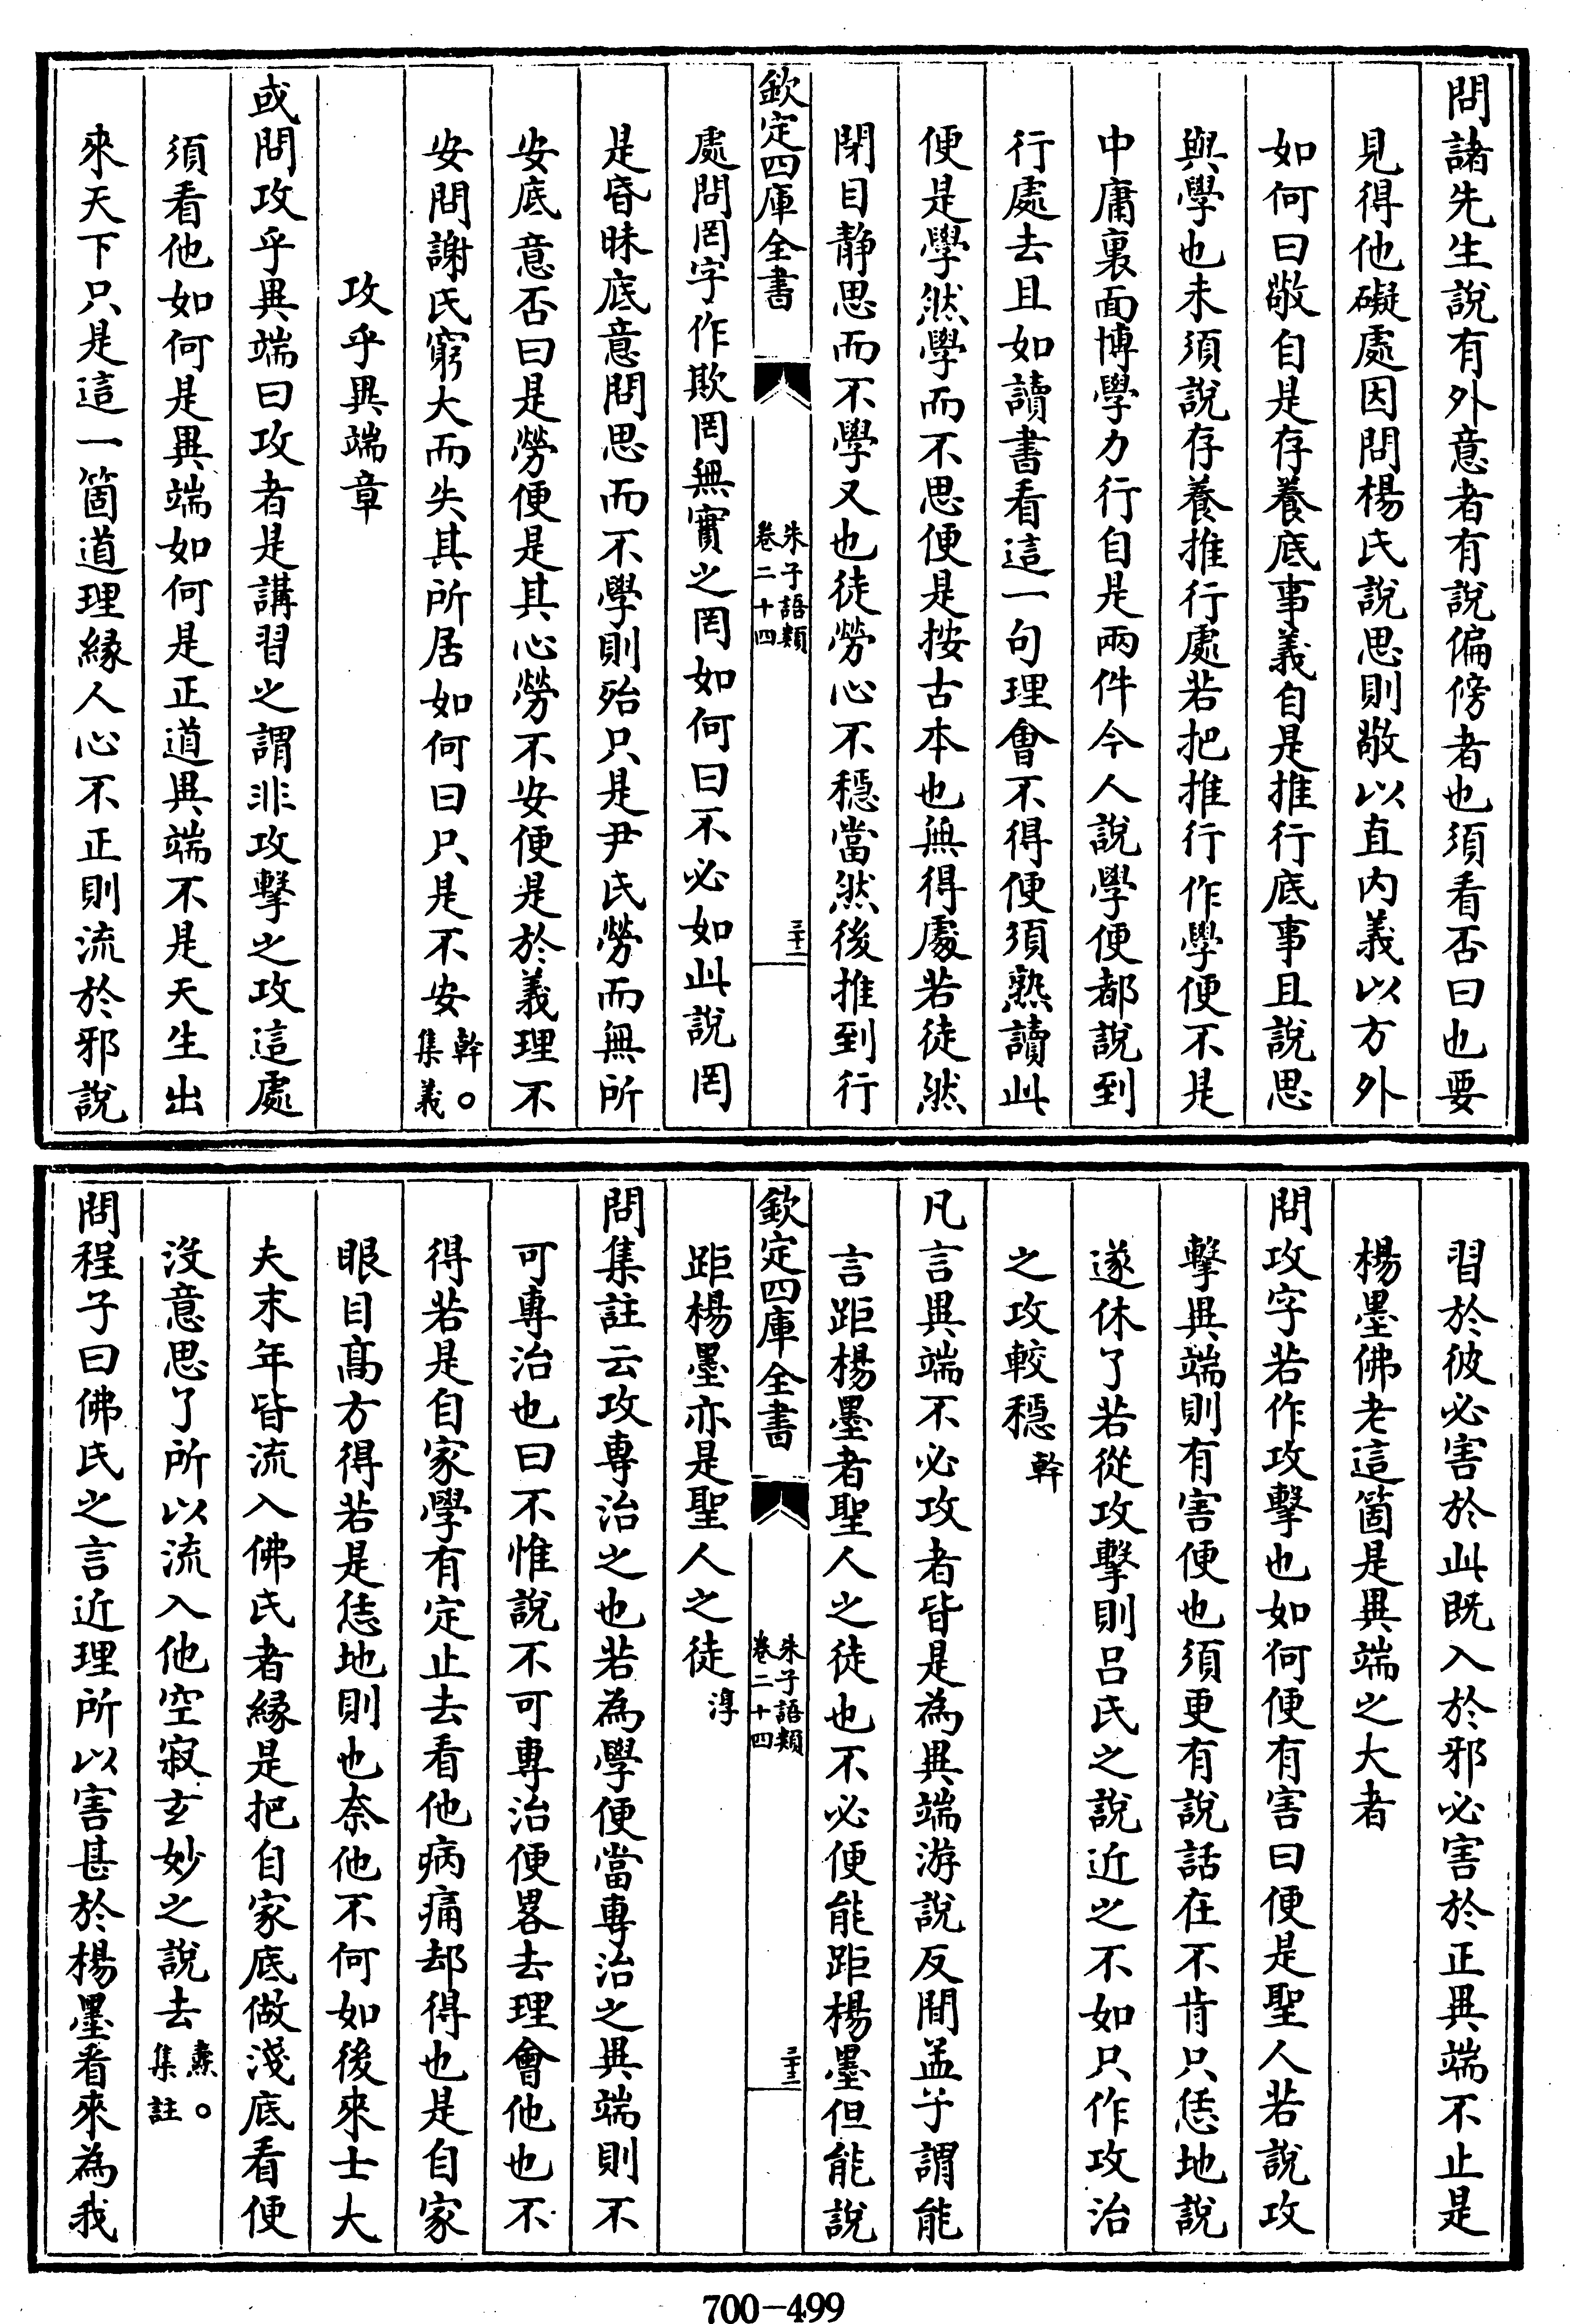 問諸先生說有外意者有說偏傍者也須看否曰也要
見得他礙處因問楊氏說思則敬以直内義以方外
如何曰敬自是存養底事義自是推行底事且說思
與學也未須說存養推行處若把推行作學便不是
中庸裏面博學力行自是兩件今人說學便都說到
行處去且如讀書看這一句理會不得便須熟讀此
便是學然學而不思便是按古本也無得處若徒然
閉目靜思而不學又也徒勞心不穩當然後推到行
欽定四庫全書
朱子語類
卷二十四
三十二
處問罔字作欺罔無實之罔如何曰不必如此說罔
是昏昧底意問思而不學則殆只是尹氏勞而無所
安底意否曰是勞便是其心勞不安便是於義理不
安問謝氏窮大而失其所居如何曰只是不安 榦○集義
攻乎異端章
或問攻乎異端曰攻者是講習之謂非攻擊之攻這處
須看他如何是異端如何是正道異端不是天生出
來天下只是這一箇道理緣人心不正則流於邪說
習於彼必害於此既入於邪必害於正異端不止是
楊墨佛老這箇是異端之大者
問攻字若作攻擊也如何便有害曰便是聖人若說攻
擊異端則有害便也須更有說話在不肯只恁地說
遂休了若從攻擊則呂氏之說近之不如只作攻治
之攻較穩 榦
凡言異端不必攻者皆是為異端游說反間孟子謂能
言距楊墨者聖人之徒也不必便能距楊墨但能說
欽定四庫全書
朱子語類
卷二十四
三十三
距楊墨亦是聖人之徒 淳
問集註云攻專治之也若為學便當專治之異端則不
可專治也曰不惟說不可專治便畧去理會他也不
得若是自家學有定止去看他病痛却得也是自家
眼目高方得若是恁地則也奈他不何如後來士大
夫末年皆流入佛氏者緣是把自家底做淺底看便
沒意思了所以流入他空寂玄妙之說去 燾○集註
問程子曰佛氏之言近理所以害甚於楊墨看來為我
700-499